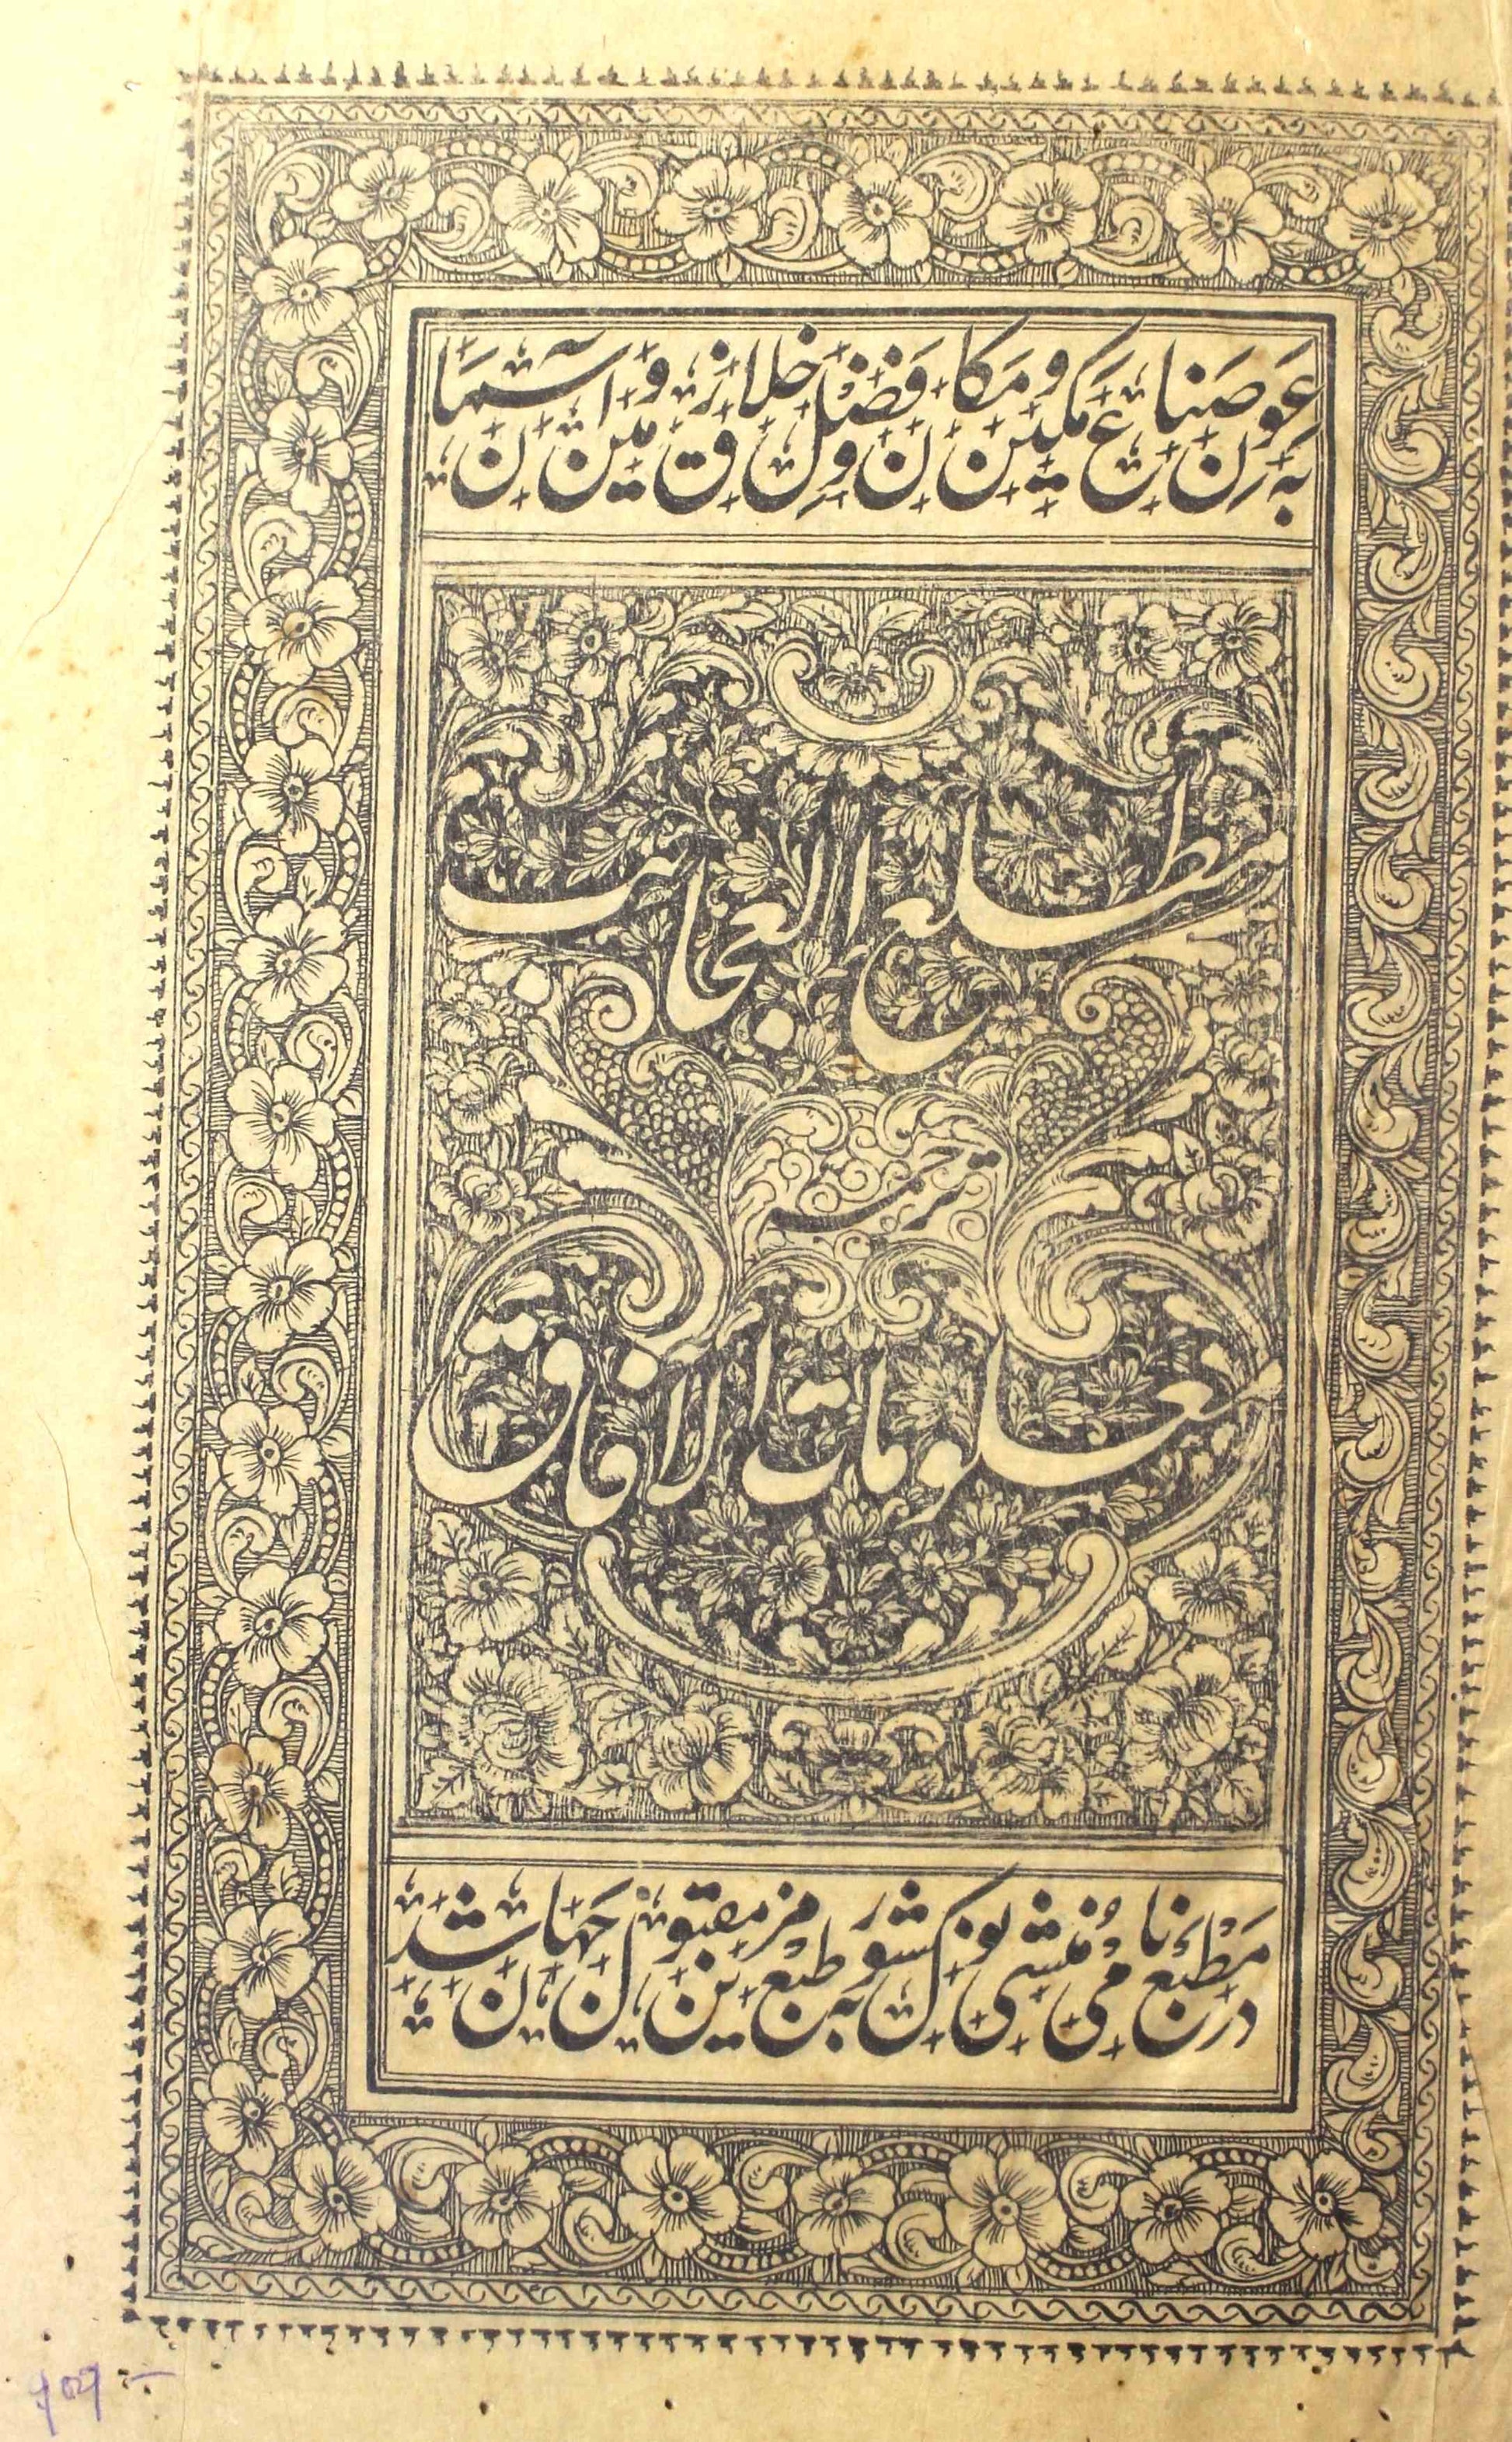 بہ عون صناع مکین و مکان و فضل خلاق زمین و آسمان
مطلع العجائب
ترجمہ
معلومات الآفاق
در مطبع نامی منشی نولکشور بہ طبع مزین مقبول جہان شد